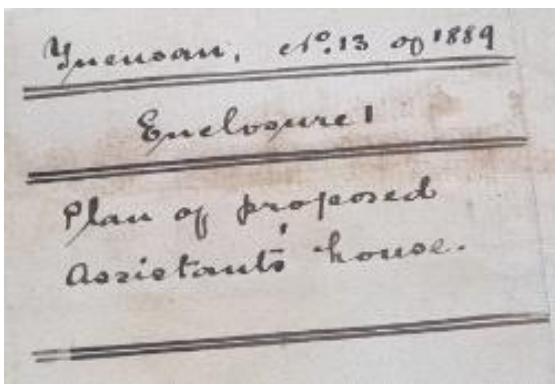 Yuensan, No. 13 of 1889
Enclosure 1
Plan of proposed
Assistants' house.